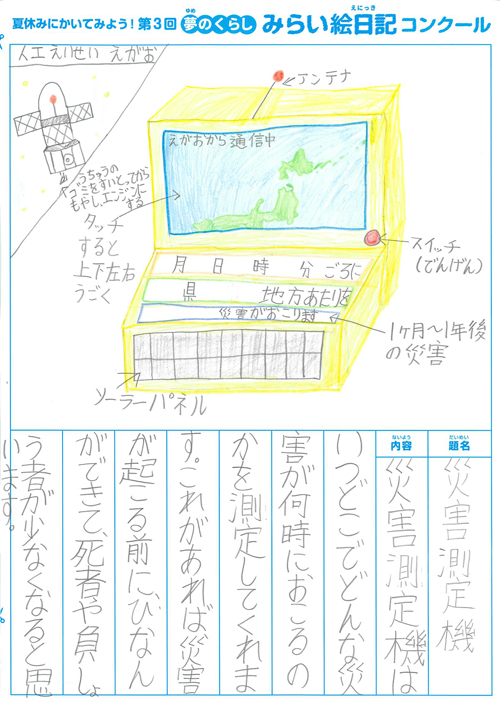 夏休みにかいてみよう！第3回 夢のくらし みらい絵日記コンクール
ゆめ
えにっき
人工えいせい えがお
うちゅうの
ゴミをすいとってから
もやし、エンジンに
する
アンテナ
えがおから通信中
タッチ
すると
上下左右
うごく
スイッチ
(でんげん)
月 日 時 分ごろに
県 地方あたりを
災害がおこります
1ヶ月〜1年後
の災害
ソーラーパネル
だいめい
題名
災害測定機
ないよう
内容
災害測定機は
いつどこでどんな災
害が何時におこるの
かを測定してくれま
す。これがあれば災害
が起こる前に、ひなん
ができて、死者や負しょ
う者が少なくなると思
います。